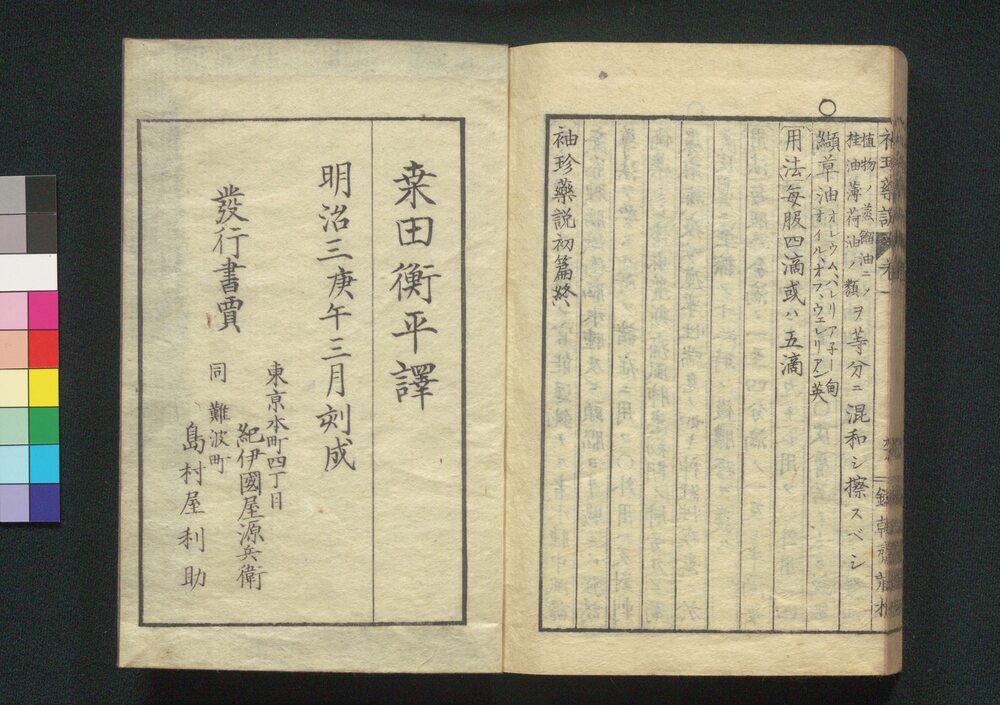 袖珍藥説
植物ノ蒸餾油ニノ
桂油薄荷油ノ類
ヲ等分ニ混和シ擦スベシ
○
纈草油
オレウム、バレリア子ー甸
オイル、オフ、ウエレリアン英
用法 毎服四滴或ハ五滴
袖珍藥説初篇終
桒田衡平譯
明治三庚午三月刻成
發行書賈
東京本町四丁目
紀伊國屋源兵衛
同 難波町
島村屋利助